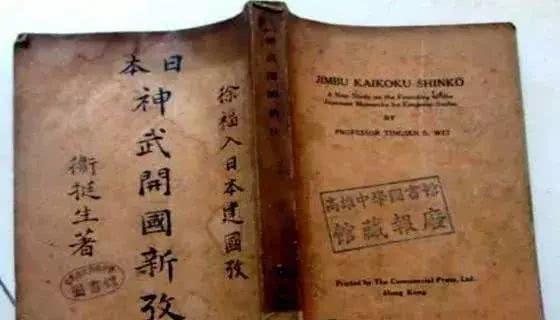 日本
神武開國新攷
徐福入日本建國攷
衞挺生著
圖書館
JIMBU KAIKOKU SHINKO
A New Study on the Founding of the
Japanese Monarchy by Emperor Jimbu
BY
PROFESSOR TINGSEN S. WEI
高雄中學圖書館
館藏報廢
Printed by The Commercial Press, Ltd.
Hong Kong